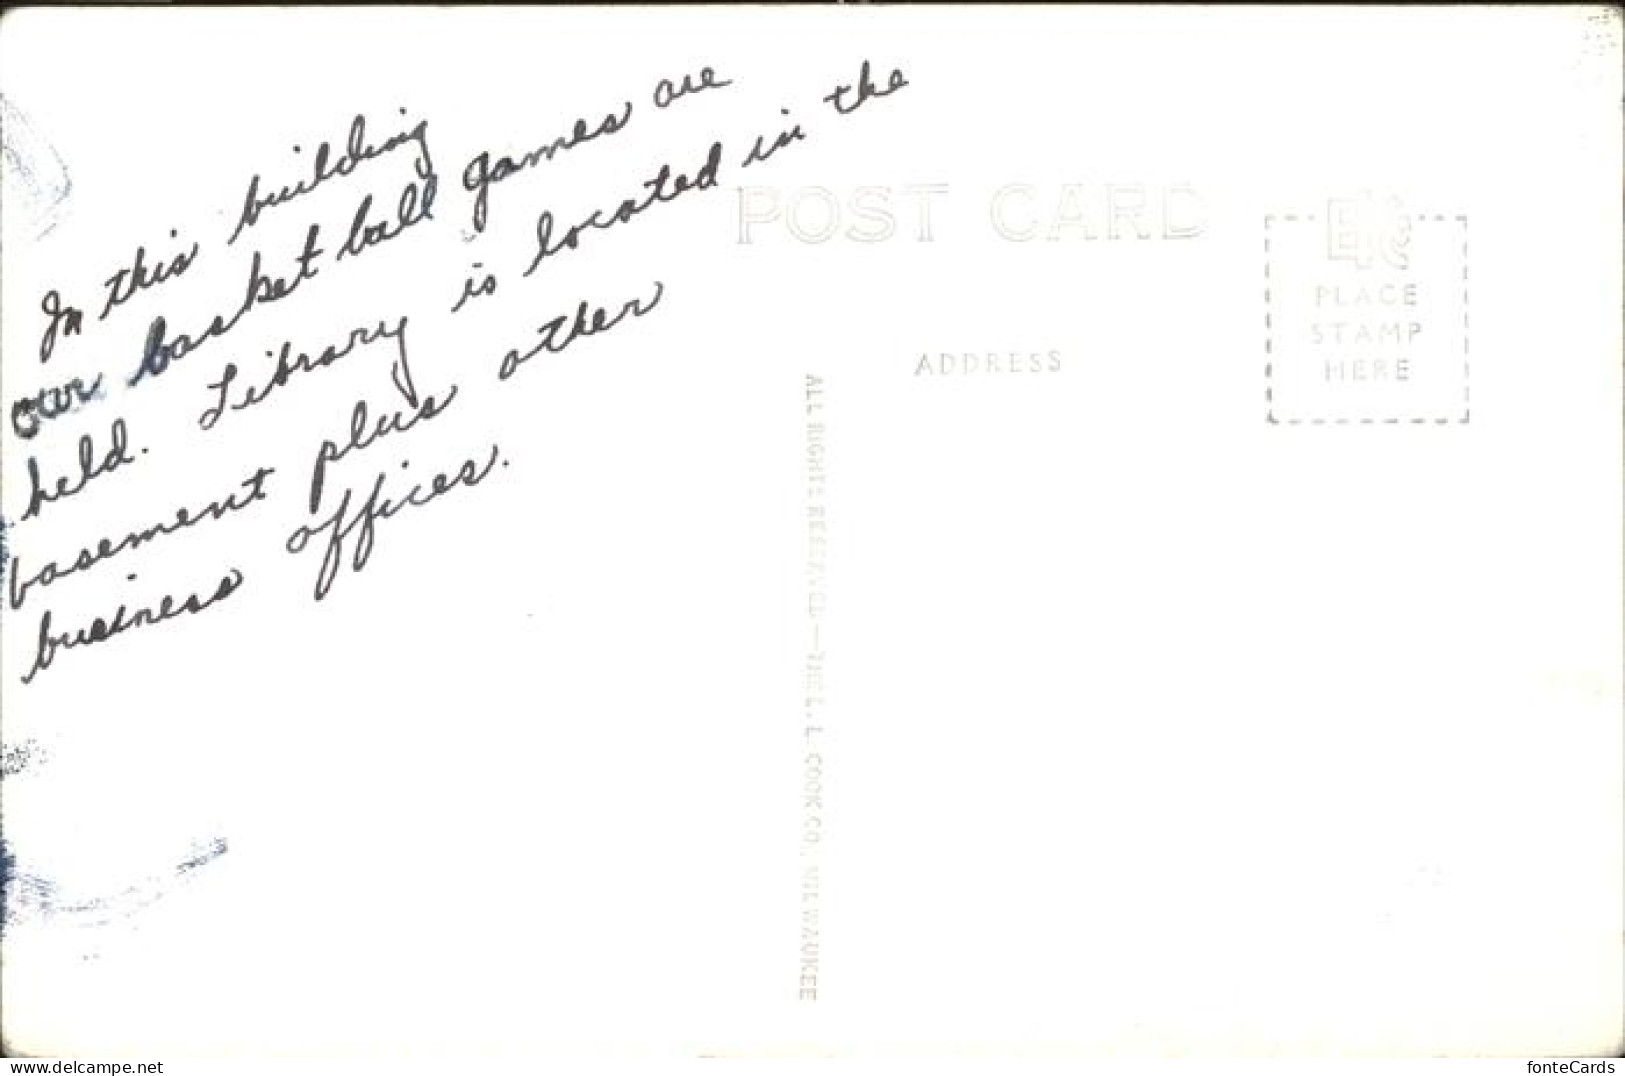 In this building
our basket ball games are
held. Library is located in the
basement plus other
business offices.
POST CARD
ADDRESS
PLACE
STAMP
HERE
ALL RIGHTS RESERVED—THE L. L. COOK CO., MILWAUKEE
www.delcampe.net
fonteCards